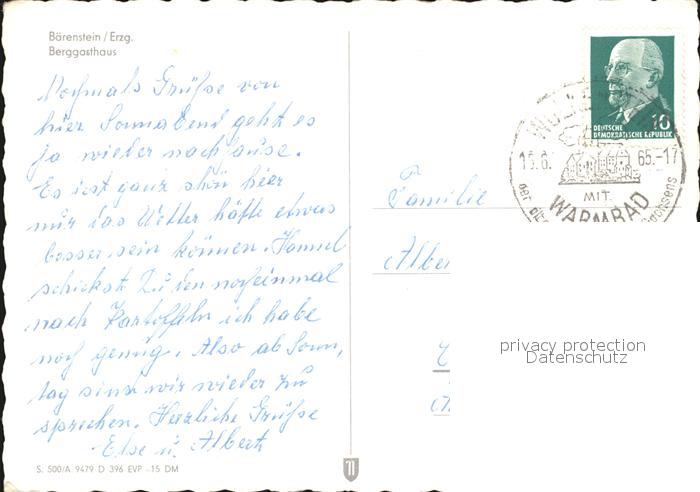 Bärenstein / Erzg.
Berggasthaus
Nochmals Grüße von
hier Sonnabend geht es
ja wieder nach
Es ist ganz schön hier
nur das Wetter hätte etwas
besser sein können.
schickst Du den noch einmal
nach Kartoffeln ich habe
noch genug. Also ab Sonn,
tag sind wir wieder zu
sprechen. Herzliche Grüße
Else u. Albert
S. 500/A 9479 D 396 EVP -15 DM
10
DEUTSCHE
DEMOKRATISCHE REPUBLIK
65.-17
MIT
WARMBAD
Familie
privacy protection
Datenschutz